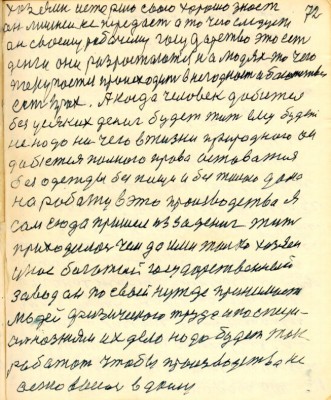 72
хозяин историю свою хорошо знает
он лишнего не передаст а то что следует
он своему рабочему государство это есть
деньги они разростаются на людях то чего
покупается происходит в негодность а богатство
есть прах. А когда человек добьется
без усяких денег будет жить ему будет
не надо ничего в жизни природного он
добьется полного права оставатся
без одежды без пищи и без жилого дома
на работу в это производства я
сам сюда пришел из за денег жить
приходилось чем до или только хозяен
у нас богатый государственный
завод он по своей нужде принимает
людей физического труда и по специ-
альностям их дело надо будет так
работат чтобы производства не
остоновился в долгу